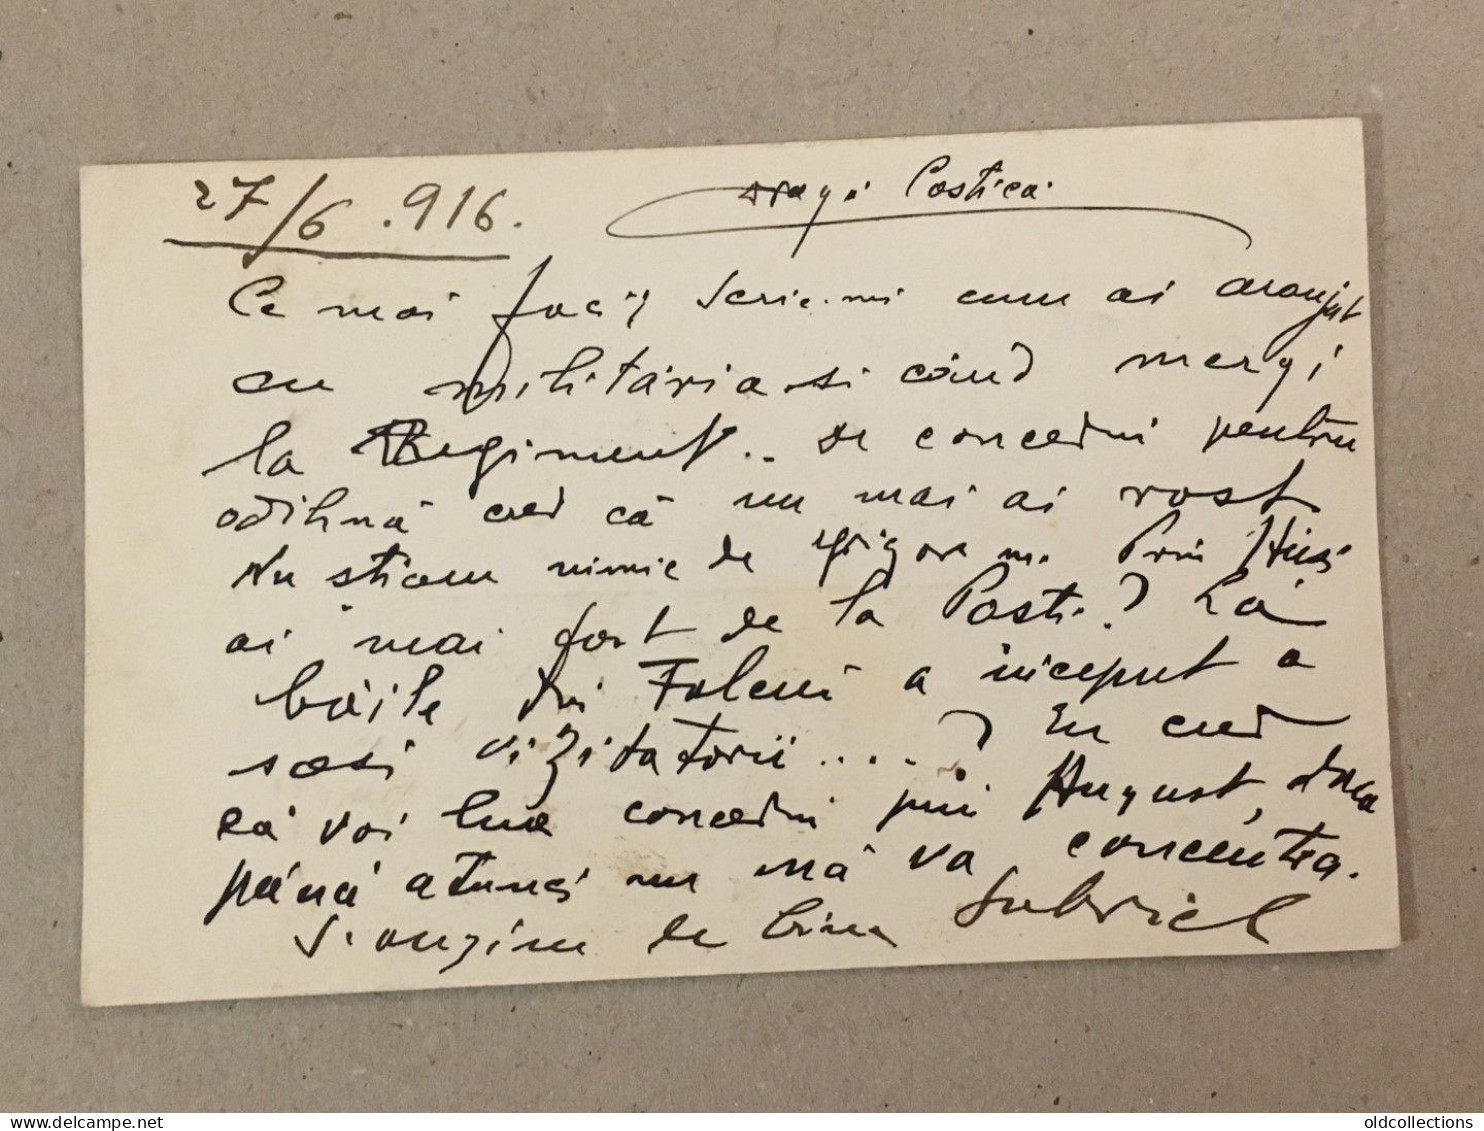 27/6.916.
Dragă Costică
Ce mai faci, scrie-mi cum ai aranjat
cu militaria si când mergi
la Regiment.. de concediu pentru
odihnă cred că nu mai ai rost
Nu stiam nimic de Prin Husi
ai mai fost de la Pasti? La
băile din Folcui a inceput a
sosi vizitatorii....? Eu cred
că voi lua concediu prin August, daca
până atunci nu mă va concentra.
de bine Gabriel
oldcollections